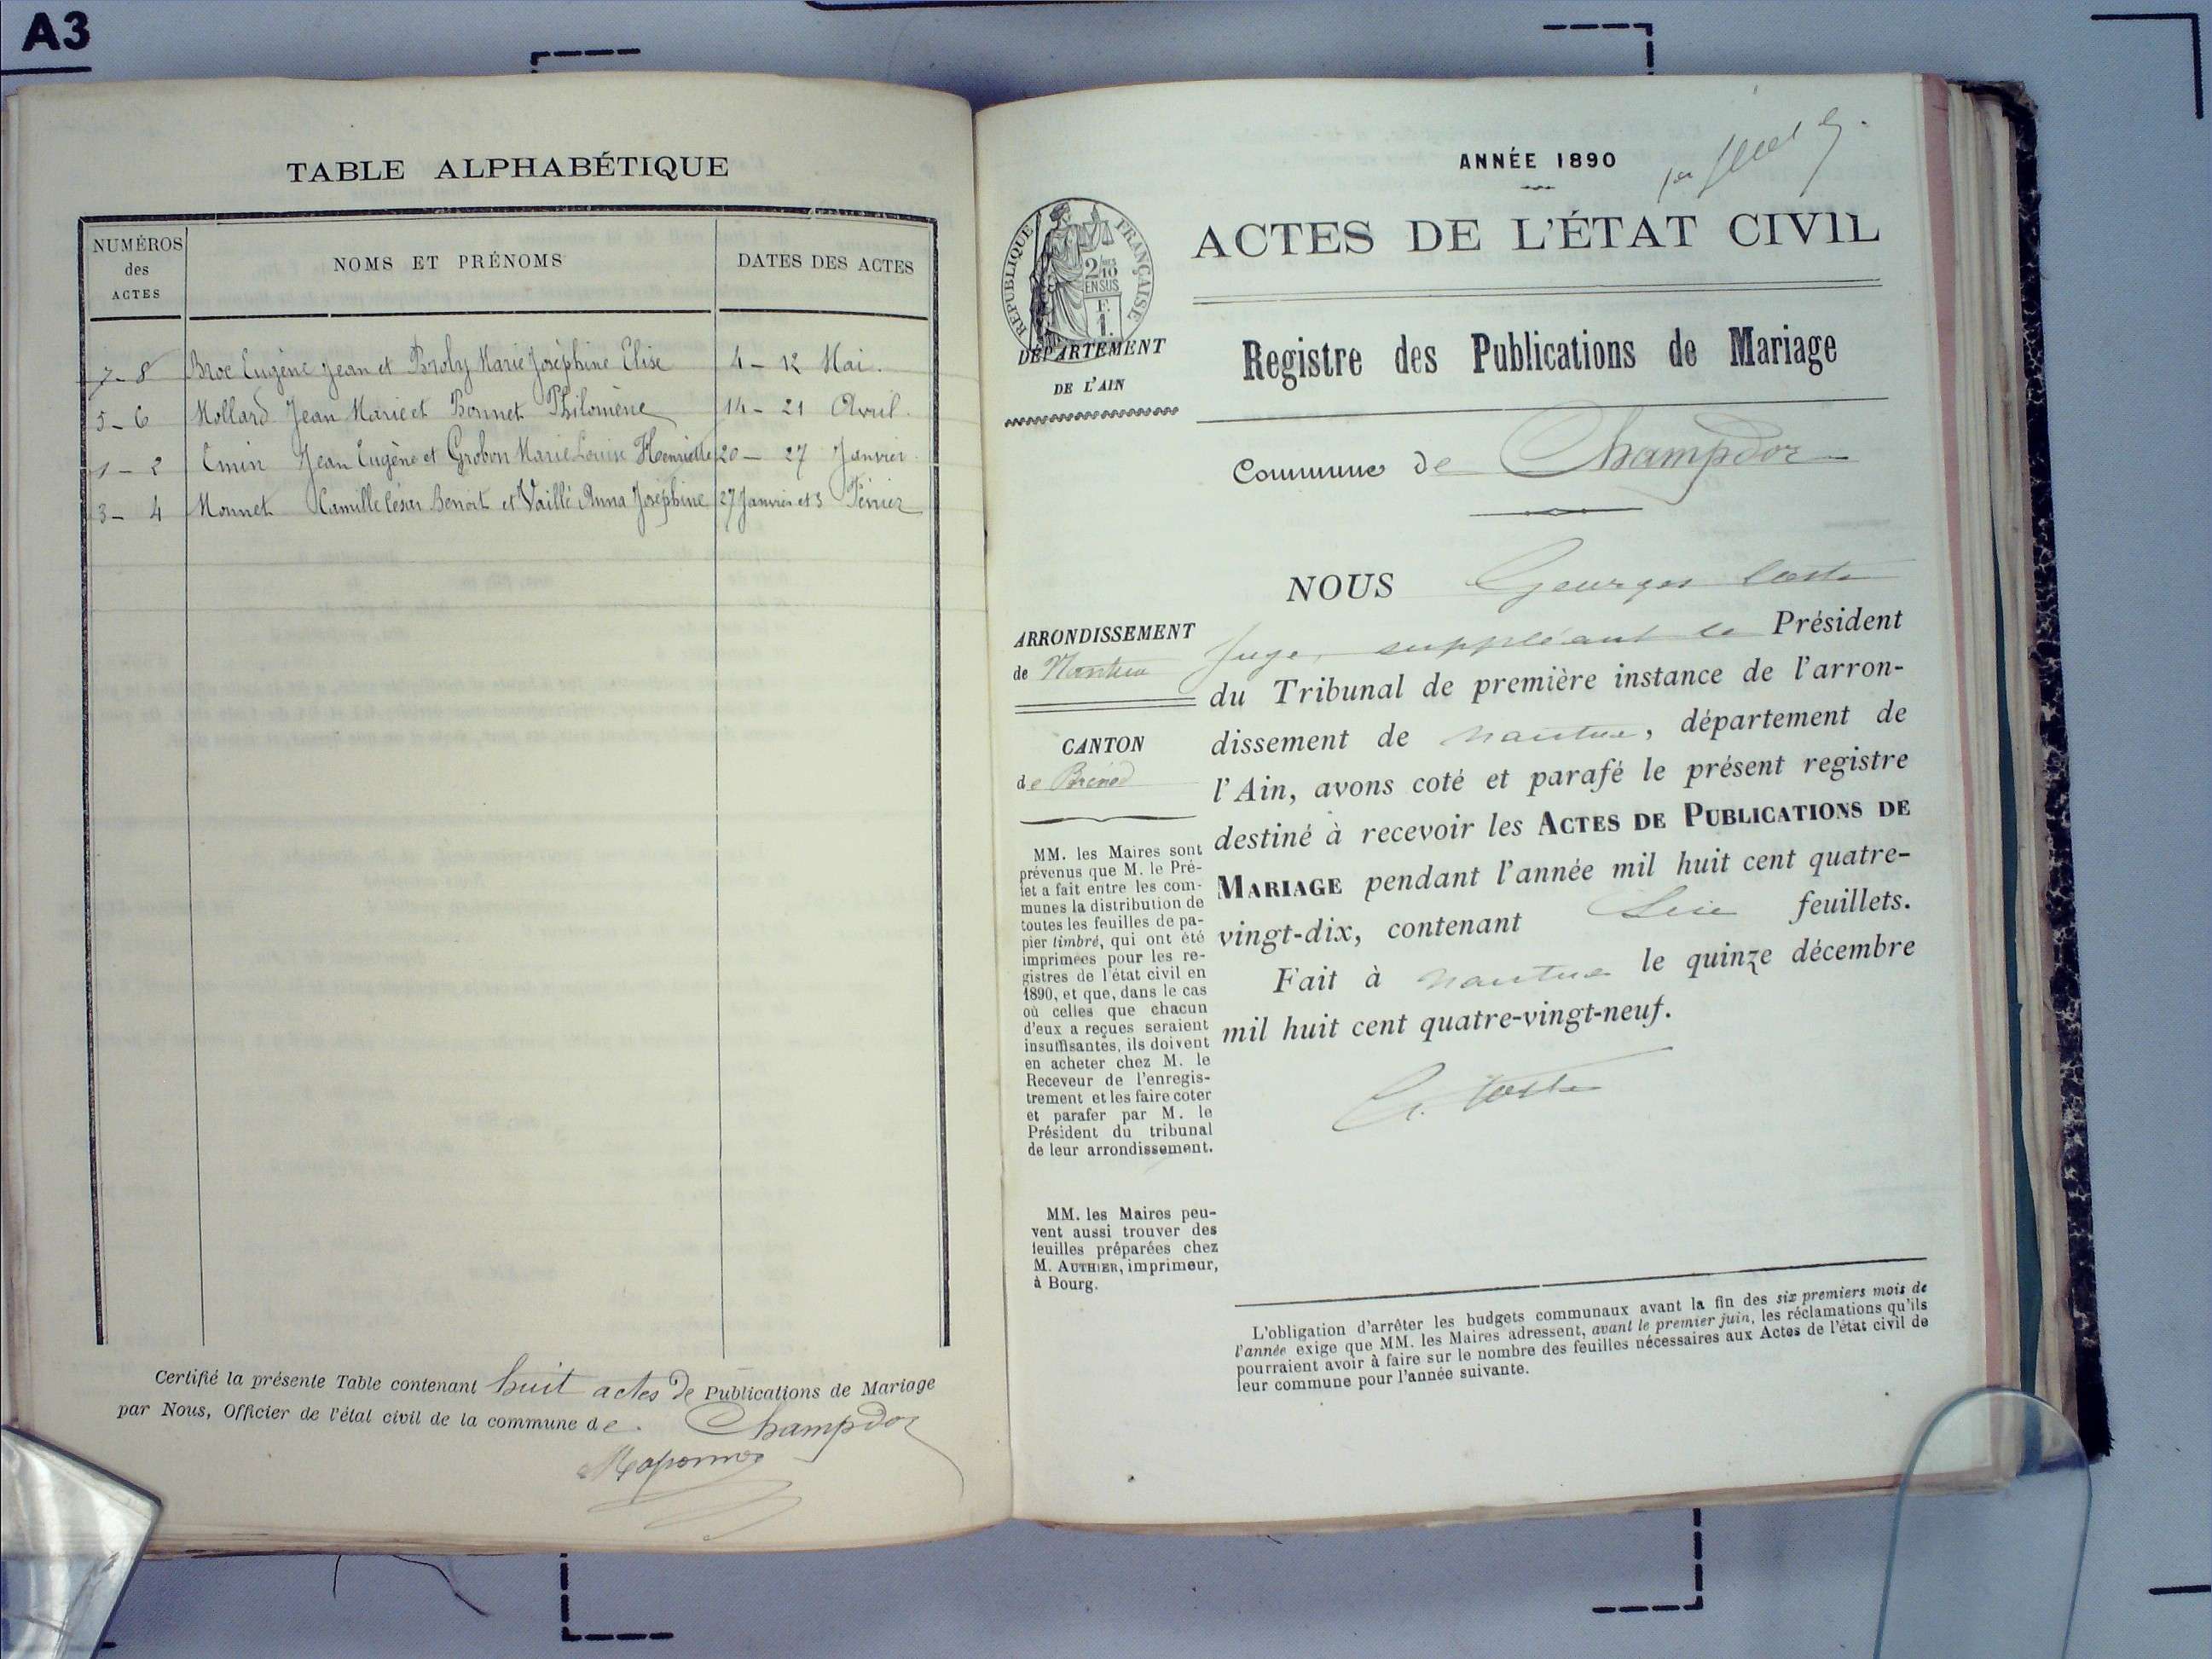 A3
TABLE ALPHABÉTIQUE
NUMÉROS
des
ACTES
NOMS ET PRÉNOMS
DATES DES ACTES
7-8 Broc Eugène Jean et Broly Marie Joséphine Elise 4-12 Mai.
5-6 Mollard Jean Marie et Bonnet Philomène 14-21 Avril.
1-2 Emin Jean Eugène et Grobon Marie Louise Henriette 20-27 Janvier.
3-4 Monnet Camille César Benoit et Vaillé Anna Joséphine 27 Janvier et 3 Février
Certifié la présente Table contenant huit actes de Publications de Mariage
par Nous, Officier de l'état civil de la commune de Champdor
ANNÉE 1890
RÉPUBLIQUE FRANÇAISE
2/10
EN SUS
F.
1.
ACTES DE L'ÉTAT CIVIL
DÉPARTEMENT
DE L'AIN
Registre des Publications de Mariage
Commune de Champdor
NOUS Georges Coste
Juge, suppléant le Président
du Tribunal de première instance de l'arron-
dissement de Nantua, département de
l'Ain, avons coté et parafé le présent registre
destiné à recevoir les ACTES DE PUBLICATIONS DE
MARIAGE pendant l'année mil huit cent quatre-
vingt-dix, contenant feuillets.
Fait à Nantua le quinze décembre
mil huit cent quatre-vingt-neuf.
G. Coste
ARRONDISSEMENT
de Nantua
CANTON
de Brénod
MM. les Maires sont
prévenus que M. le Pré-
fet a fait entre les com-
munes la distribution de
toutes les feuilles de pa-
pier timbré, qui ont été
imprimées pour les re-
gistres de l'état civil en
1890, et que, dans le cas
où celles que chacun
d'eux a reçues seraient
insuffisantes, ils doivent
en acheter chez M. le
Receveur de l'enregis-
trement et les faire coter
et parafer par M. le
Président du tribunal
de leur arrondissement.
MM. les Maires peu-
vent aussi trouver des
feuilles préparées chez
M. AUTHIER, imprimeur,
à Bourg.
L'obligation d'arrêter les budgets communaux avant la fin des six premiers mois de
l'année exige que MM. les Maires adressent, avant le premier juin, les réclamations qu'ils
pourraient avoir à faire sur le nombre des feuilles nécessaires aux Actes de l'état civil de
leur commune pour l'année suivante.